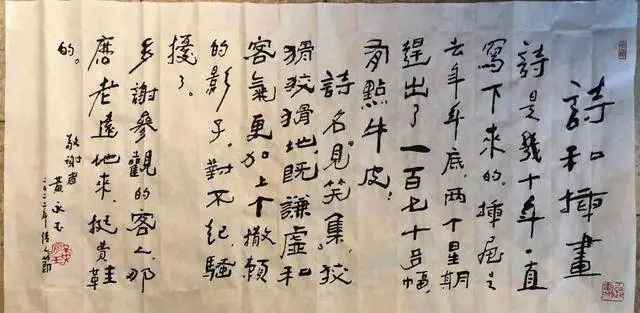 詩和插畫
詩是幾十年一直
寫下來的。插畫是
去年年底,兩个星期
趕出了一百七十多幅,
有點牛皮。
詩名《見笑集》,狡
猾狡猾地,既謙虛和
客氣更加上个撒賴
的影子。對不起,騷
擾了。
多謝參觀的客人,那
麽老遠地來,挺費鞋
的。
敬谢者
黄永玉
二〇二二年情人節